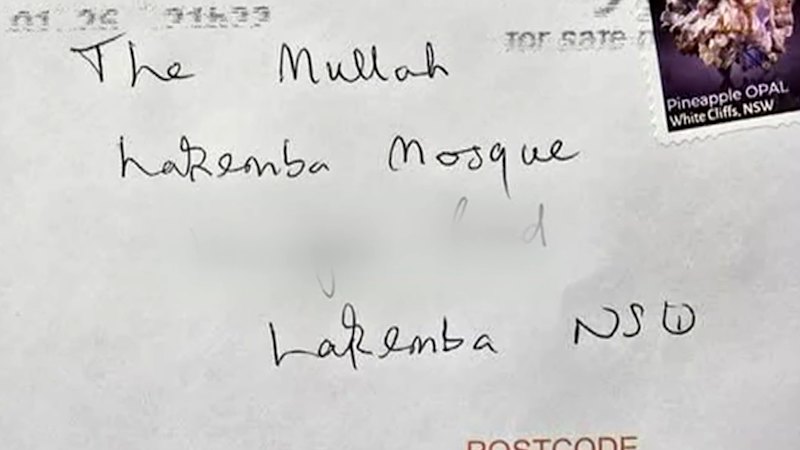 01.26 21h22
for safe
Pineapple OPAL
White Cliffs, NSW
The Mullah
Lakemba Mosque
Lakemba NSW
POSTCODE